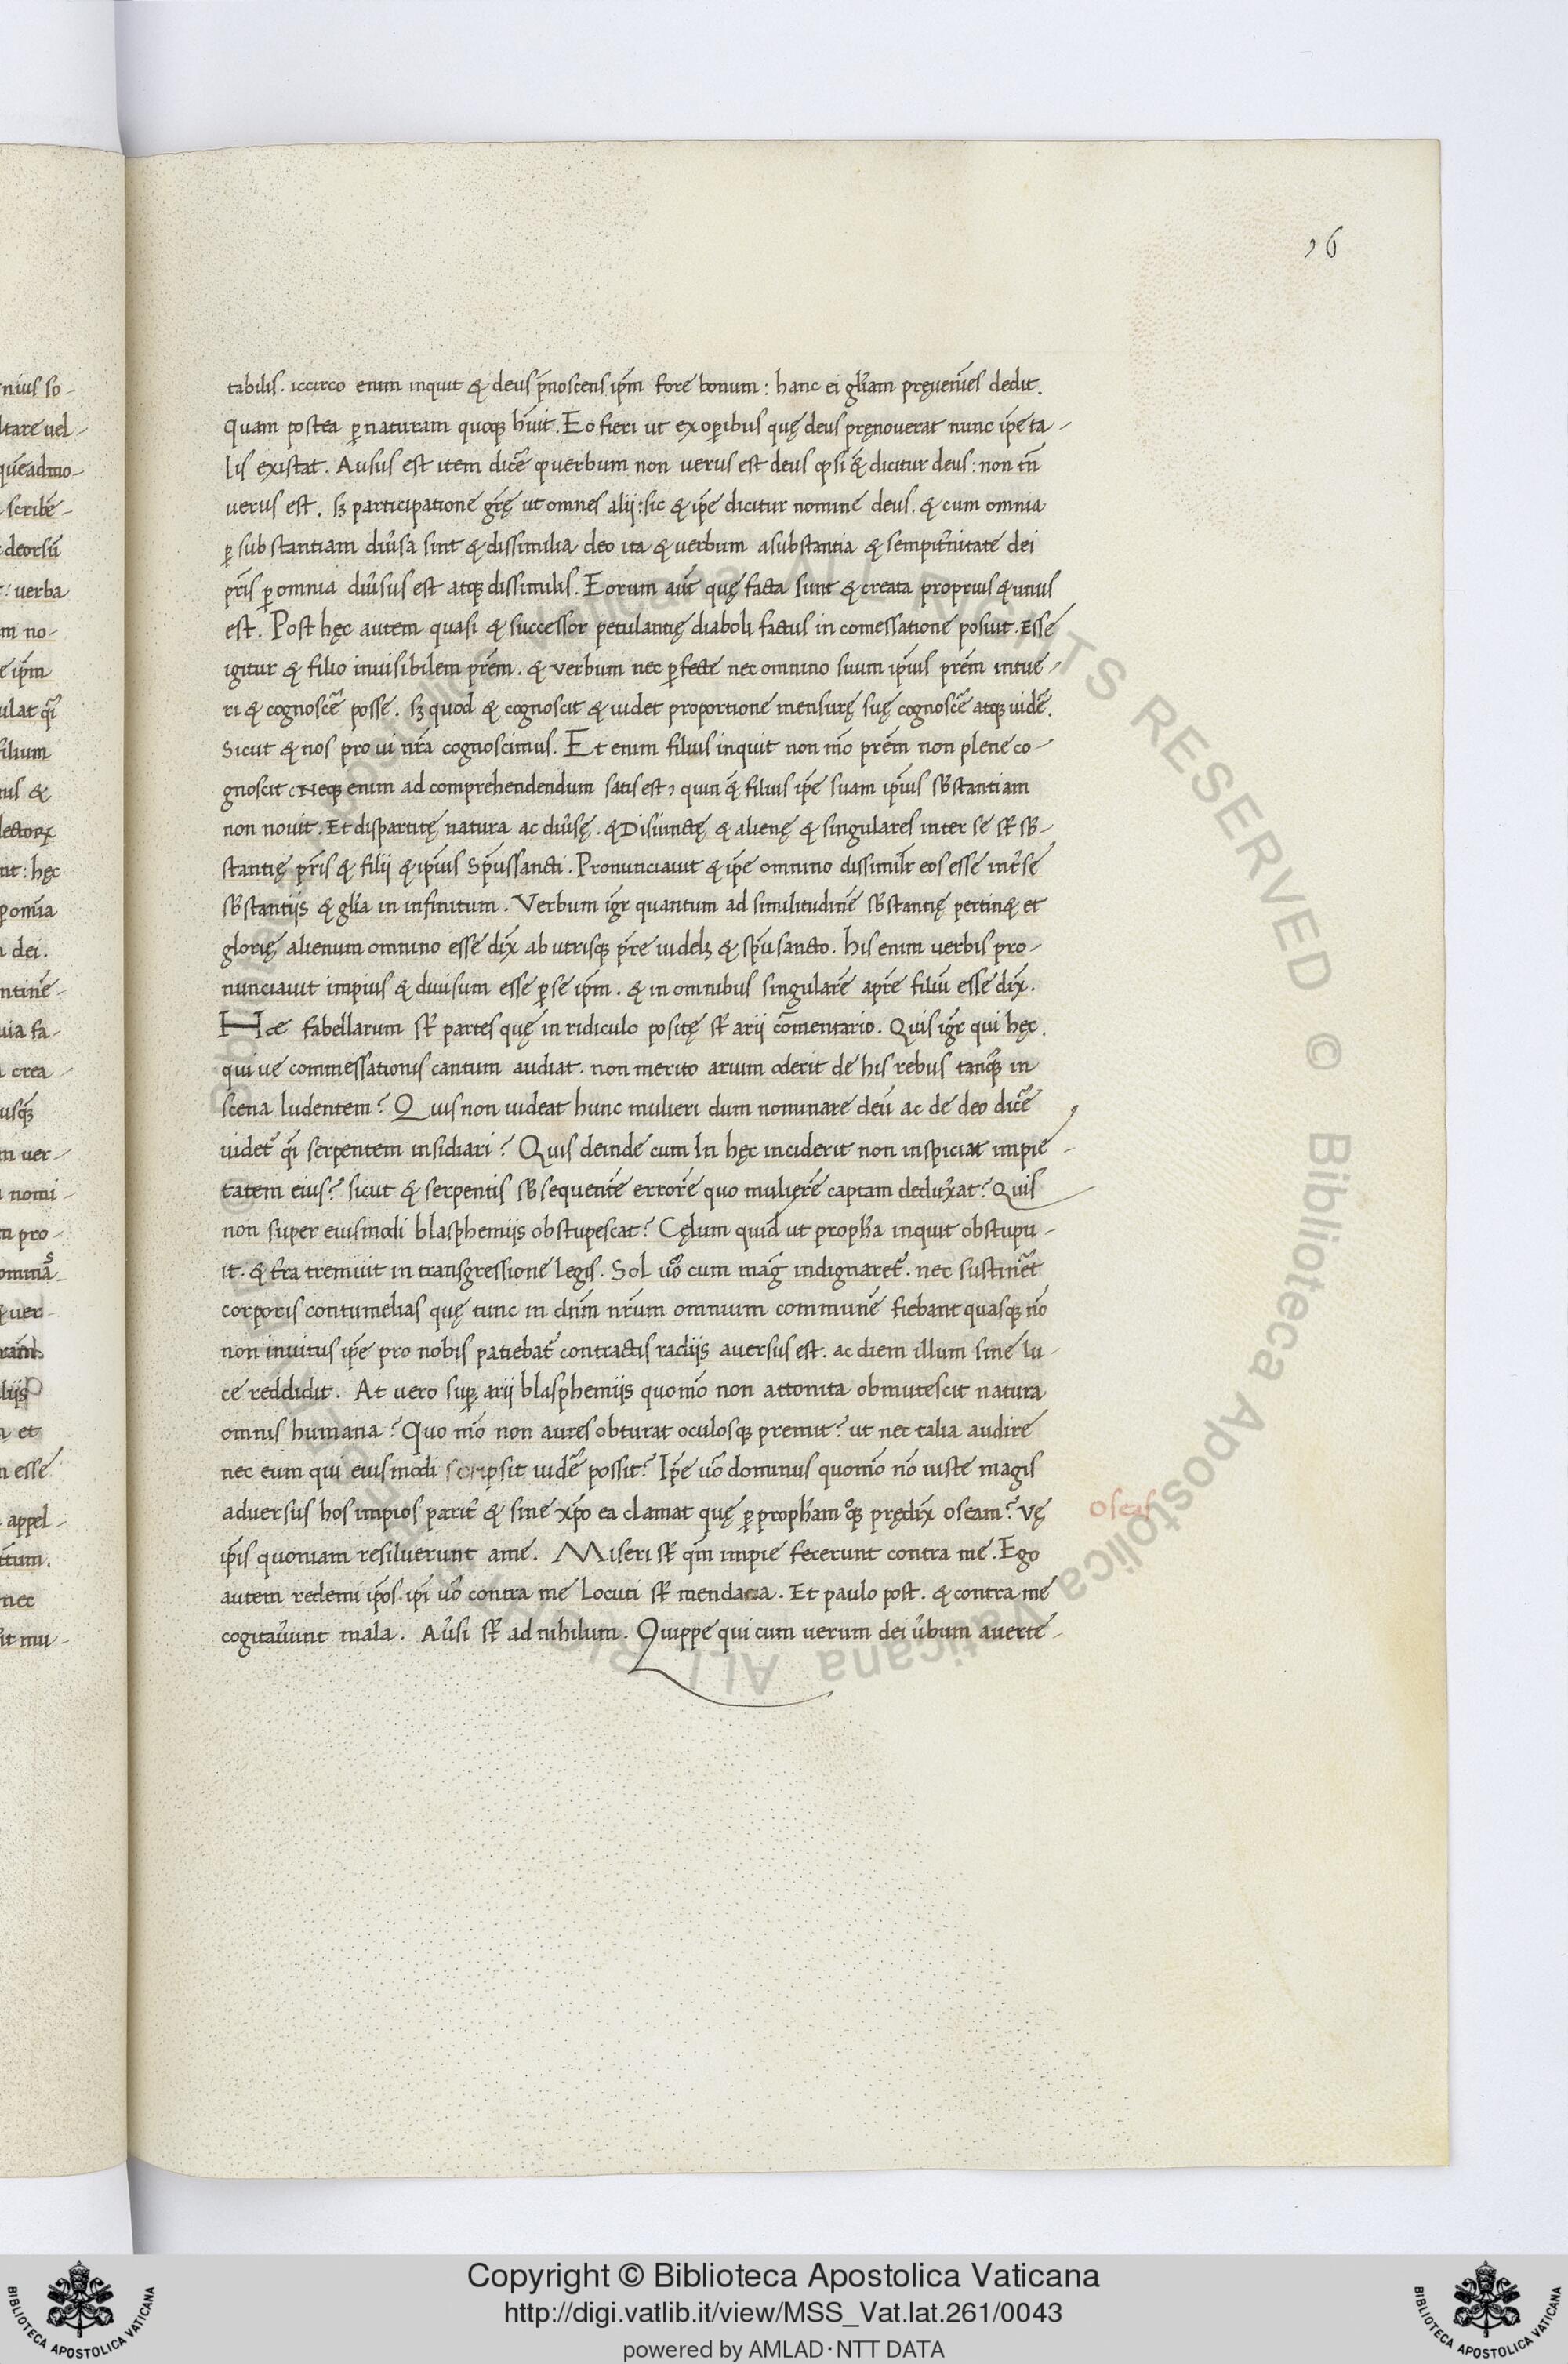 16
tabilis. iccirco enim inquit & deus p̄noscens ip̄m fore bonum: hanc ei gl̄iam pręveniēs dedit.
Quam postea ꝑ naturam quoqꝫ h̄uit. Eo fieri ut ex oꝑibus quę deus pręnoverat nunc ip̄e ta-
lis existat. Ausus est item dicē̄ ꝙ verbum non verus est deus ꝙ si & dicitur deus: non tn̄
verus est. sꝫ participatione gr̄ę ut omnes alij: sic & ip̄e dicitur nomine deus. & cum omnia
ꝑ substantiam div̄sa sint & dissimilia deo ita & verbum a substantia & sempit̄nitate dei
pr̄is ꝑ omnia div̄sus est atqꝫ dissimilis. Eorum aūt quę facta sunt & creata proprius & unus
est. Post hęc autem quasi & successor petulantię diaboli factus in comessatione posuit. Esse
igitur & filio invisibilem pr̄em. & verbum nec ꝑfecte nec omnino suum ip̄ius pr̄em intue-
ri & cognoscē̄ posse. sꝫ quod & cognoscit & videt proportione mensurę suę cognoscē̄ atqꝫ vidē̄.
Sicut & nos pro vi nr̄a cognoscimus. Et enim filius inquit non mō pr̄em non plene co-
gnoscit (Neqꝫ enim ad comprehendendum satis est, quin & filius ip̄e suam ip̄ius sb̄stantiam
non novit. Et dispartitę natura ac div̄sę. & Disiunctę & alienę & singulares inter se st̄ sb̄-
stantię pr̄is & filij & ip̄ius Sp̄ussancti. Pronunciavit & ip̄e omnino dissimilr̄ eos esse int̄ se
sb̄stantijs & gl̄ia in infinitum. Verbum igr̄ quantum ad similitudinē sb̄stantię pertin& et
glorię alienum omnino esse dix̄ ab utrisqꝫ pr̄e videlꝫ & sp̄usancto. his enim verbis pro-
nunciavit impius & divisum esse ꝑ se ip̄m. & in omnibus singularē a pr̄e filiū esse dix̄.
Hae fabellarum st̄ partes quę in ridiculo positę st̄ arij cōmentario. Quis igr̄ qui hęc.
qui ve commessationis cantum audiat. non merito arium oderit de his rebus tanqꝫ in
scena ludentem? Quis non videat hunc mulieri dum nominare deū ac de deo dicē̄
videt᷑ qͣi serpentem insidiari? Quis deinde cum In hęc inciderit non inspiciat impie-
tatem eius? sicut & serpentis sb̄sequentē errorē quo mulierē captam dedux̄at? Quis
non super eiusmodi blasphemijs obstupescat? Cęlum quid ut proph̄a inquit obstupu-
it. & t̄ra tremuit in transgressione legis. Sol vͦo cum maḡ indignaret᷑. nec sustin̄et
corporis contumelias quę tunc in dn̄m nr̄um omnium communē fiebant quasqꝫ nō
non invitus ip̄e pro nobis patiebat᷑ contractis radijs aversus est. ac diem illum sine lu-
ce reddidit. At vero suꝑ arij blasphemijs quomō non attonita obmutescit natura
omnis humana? Quo mō non aures obturat oculosqꝫ premit? ut nec talia audire
nec eum qui eiusmodi scripsit vidē̄ possit? Ip̄e vͦo dominus quomō nō iuste magis
adversus hos impios parit̄ & sine xp̄o ea clamat quę ꝑ proph̄am qͦqꝫ prędix̄ oseam? Vę
ip̄is quoniam resiluerunt a me. Miseri st̄ qm̄ impie fecerunt contra me. Ego
autem redemi ip̄os. ip̄i vͦo contra me Locuti st̄ mendacia. Et paulo post. & contra me
cogitav̄unt mala. Av̄si st̄ ad nihilum. Quippe qui cum verum dei v̄bum averte-
Oseas
nius so-
ltare vel-
quēadmo-
scribē-
deorsū
: verba
m no-
e ip̄m
ulat qͣi
filium
tus &
lectoꝝ
nt: hęc
ꝑ omīa
dei.
ntine-
uia fa-
crea-
usqꝫ
m ver-
nomi-
m pro-
& ver-
lijs
et
n esse
appel-
nec
it mu-
Copyright © Biblioteca Apostolica Vaticana
http://digi.vatlib.it/view/MSS_Vat.lat.261/0043
powered by AMLAD·NTT DATA
BIBLIOTECA APOSTOLICA VATICANA
BIBLIOTECA APOSTOLICA VATICANA